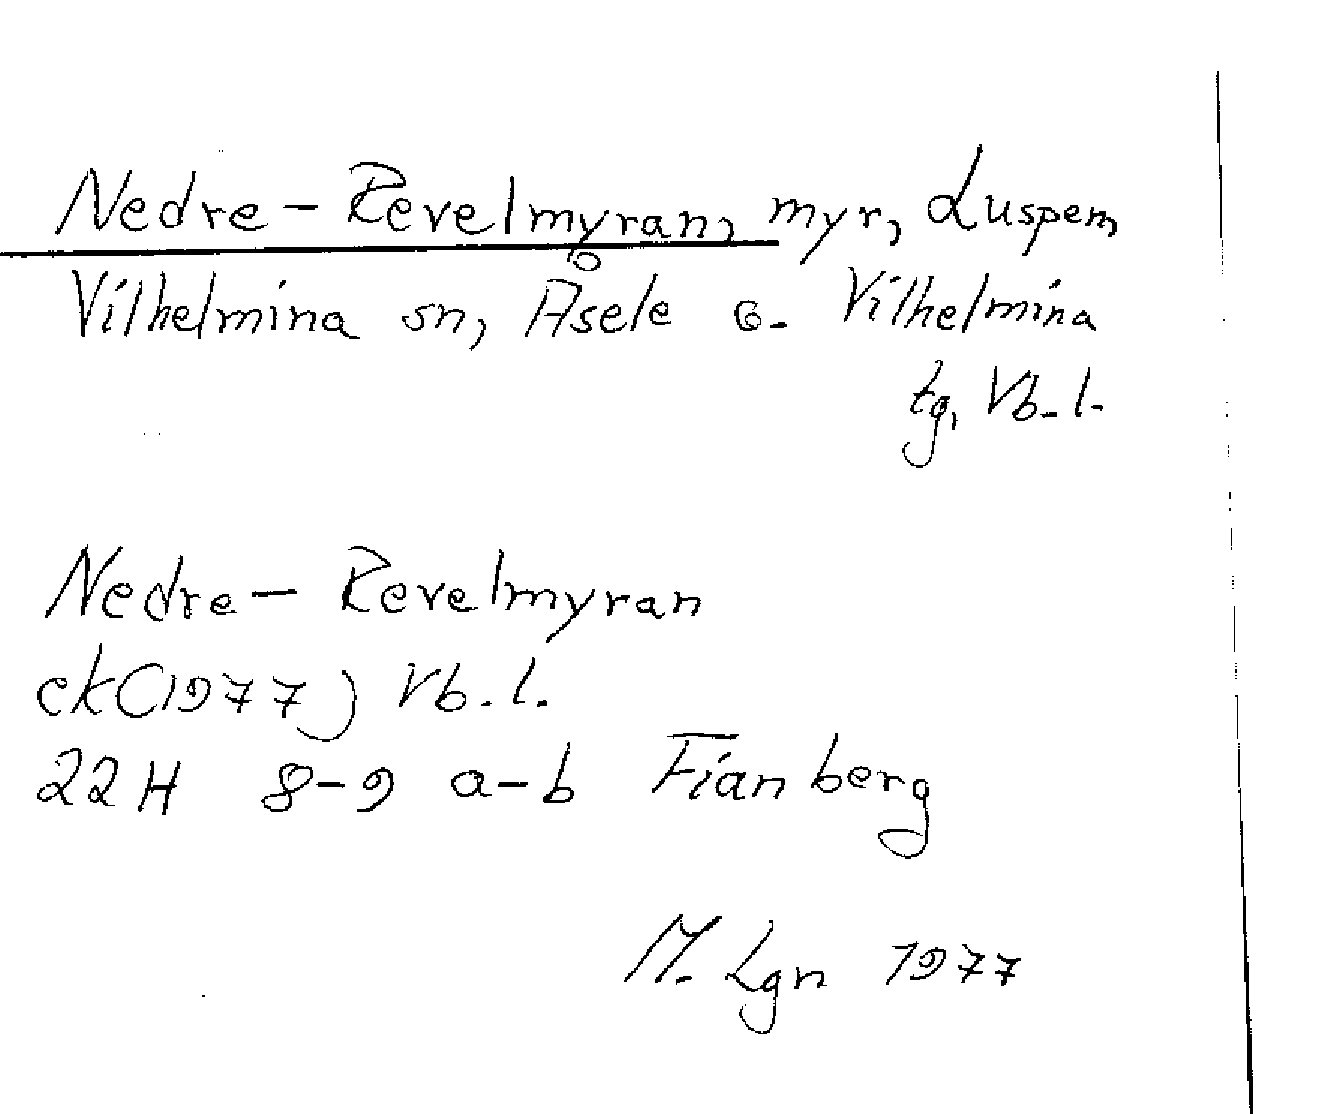 Nedre-Revelmyran, myr, Luspen,
Vilhelmina sn, Åsele o. Vilhelmina
tg, Vb. l.
Nedre-Revelmyran
ek(1977) Vb. l.
22H 8-9 a-b Fianberg
M. Lgn 1977